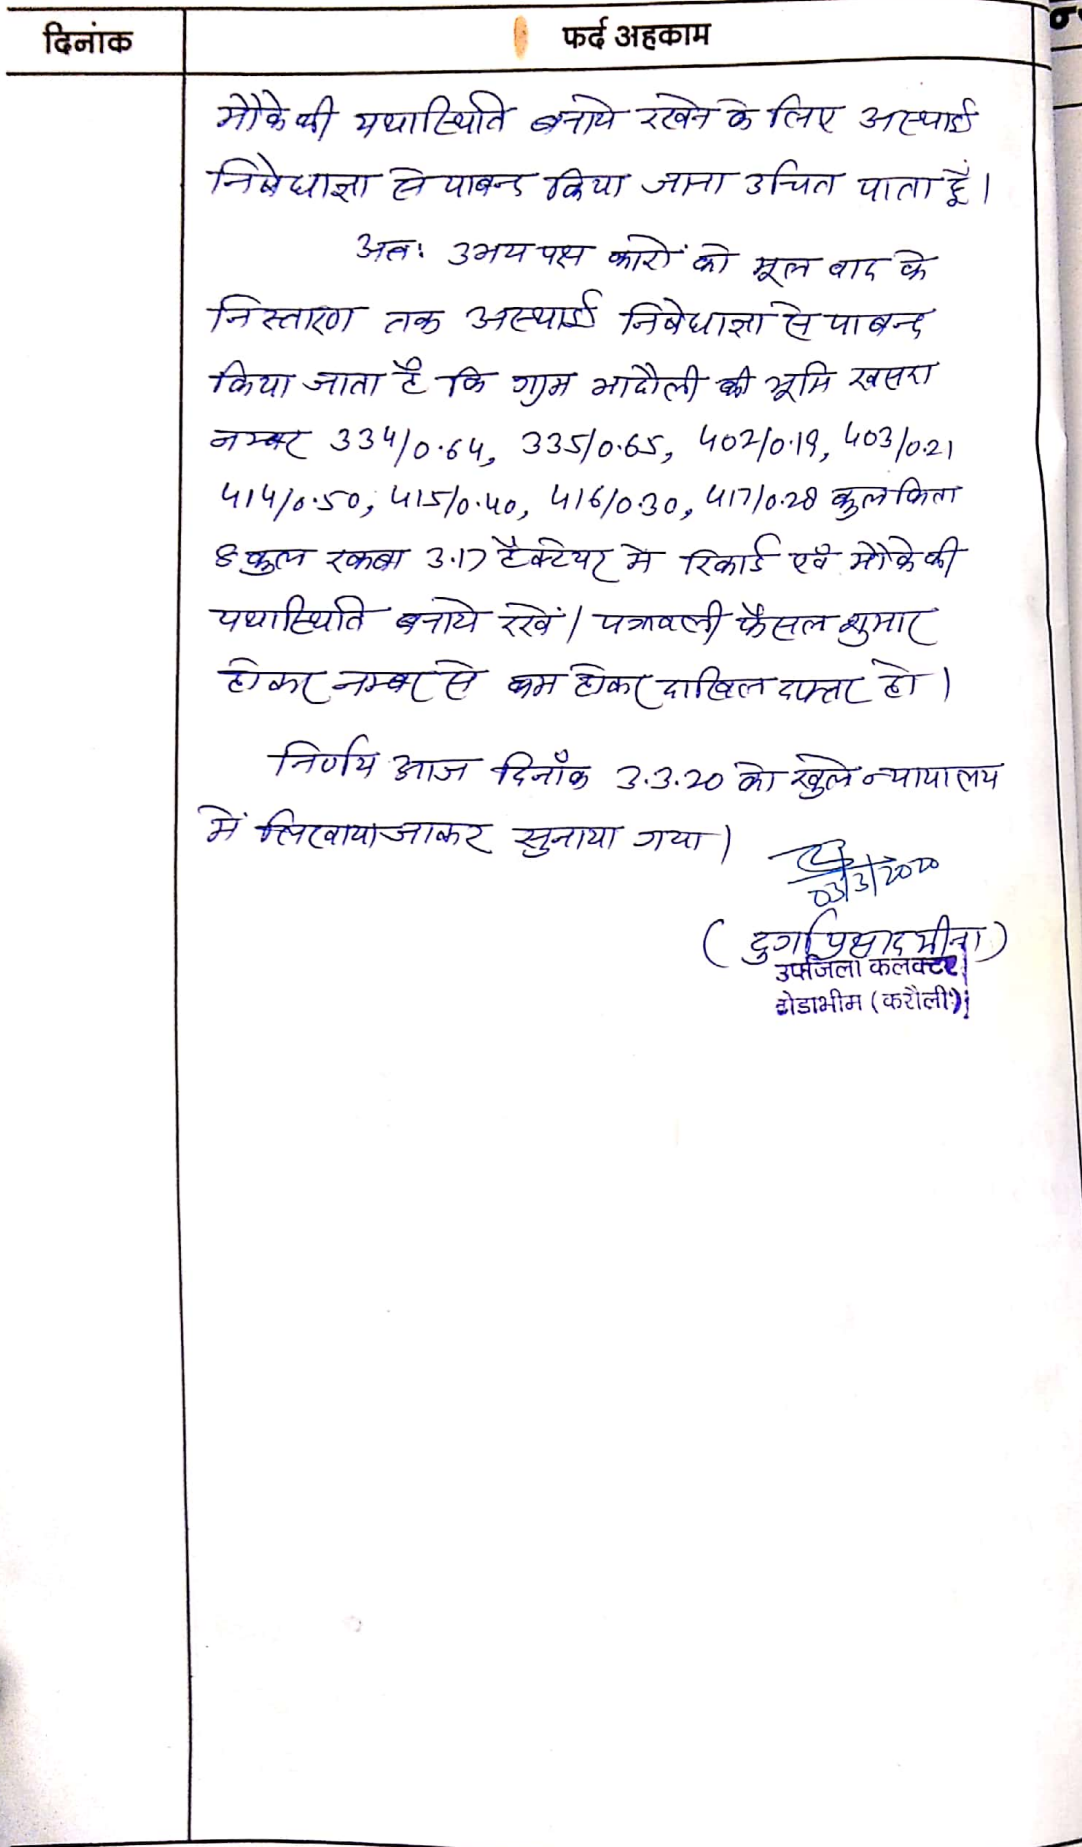 दिनांक
फर्द अहकाम
मौके की यथास्थिति बनाये रखने के लिए अस्थाई
निषेधाज्ञा से पाबन्द किया जाना उचित पाता हूँ।
अतः उभय पक्ष कारों को मूल वाद के
निस्तारण तक अस्थाई निषेधाज्ञा से पाबन्द
किया जाता है कि ग्राम भादौली की भूमि खसरा
नम्बर 334/0.64, 335/0.65, 402/0.19, 403/0.21
414/0.50, 415/0.40, 416/0.30, 417/0.28 कुल किता
8 कुल रकबा 3.17 हैक्टेयर मे रिकार्ड एवं मौके की
यथास्थिति बनाये रखें। पत्रावली फैसल शुमार
होकर नम्बर से कम होकर दाखिल दफ्तर हो।
निर्णय आज दिनाँक 3.3.20 को खुले न्यायालय
में लिखाया जाकर सुनाया गया।
03/3/2020
(दुर्गाप्रसाद मीना)
उपजिला कलक्टर
टोडाभीम (करौली)